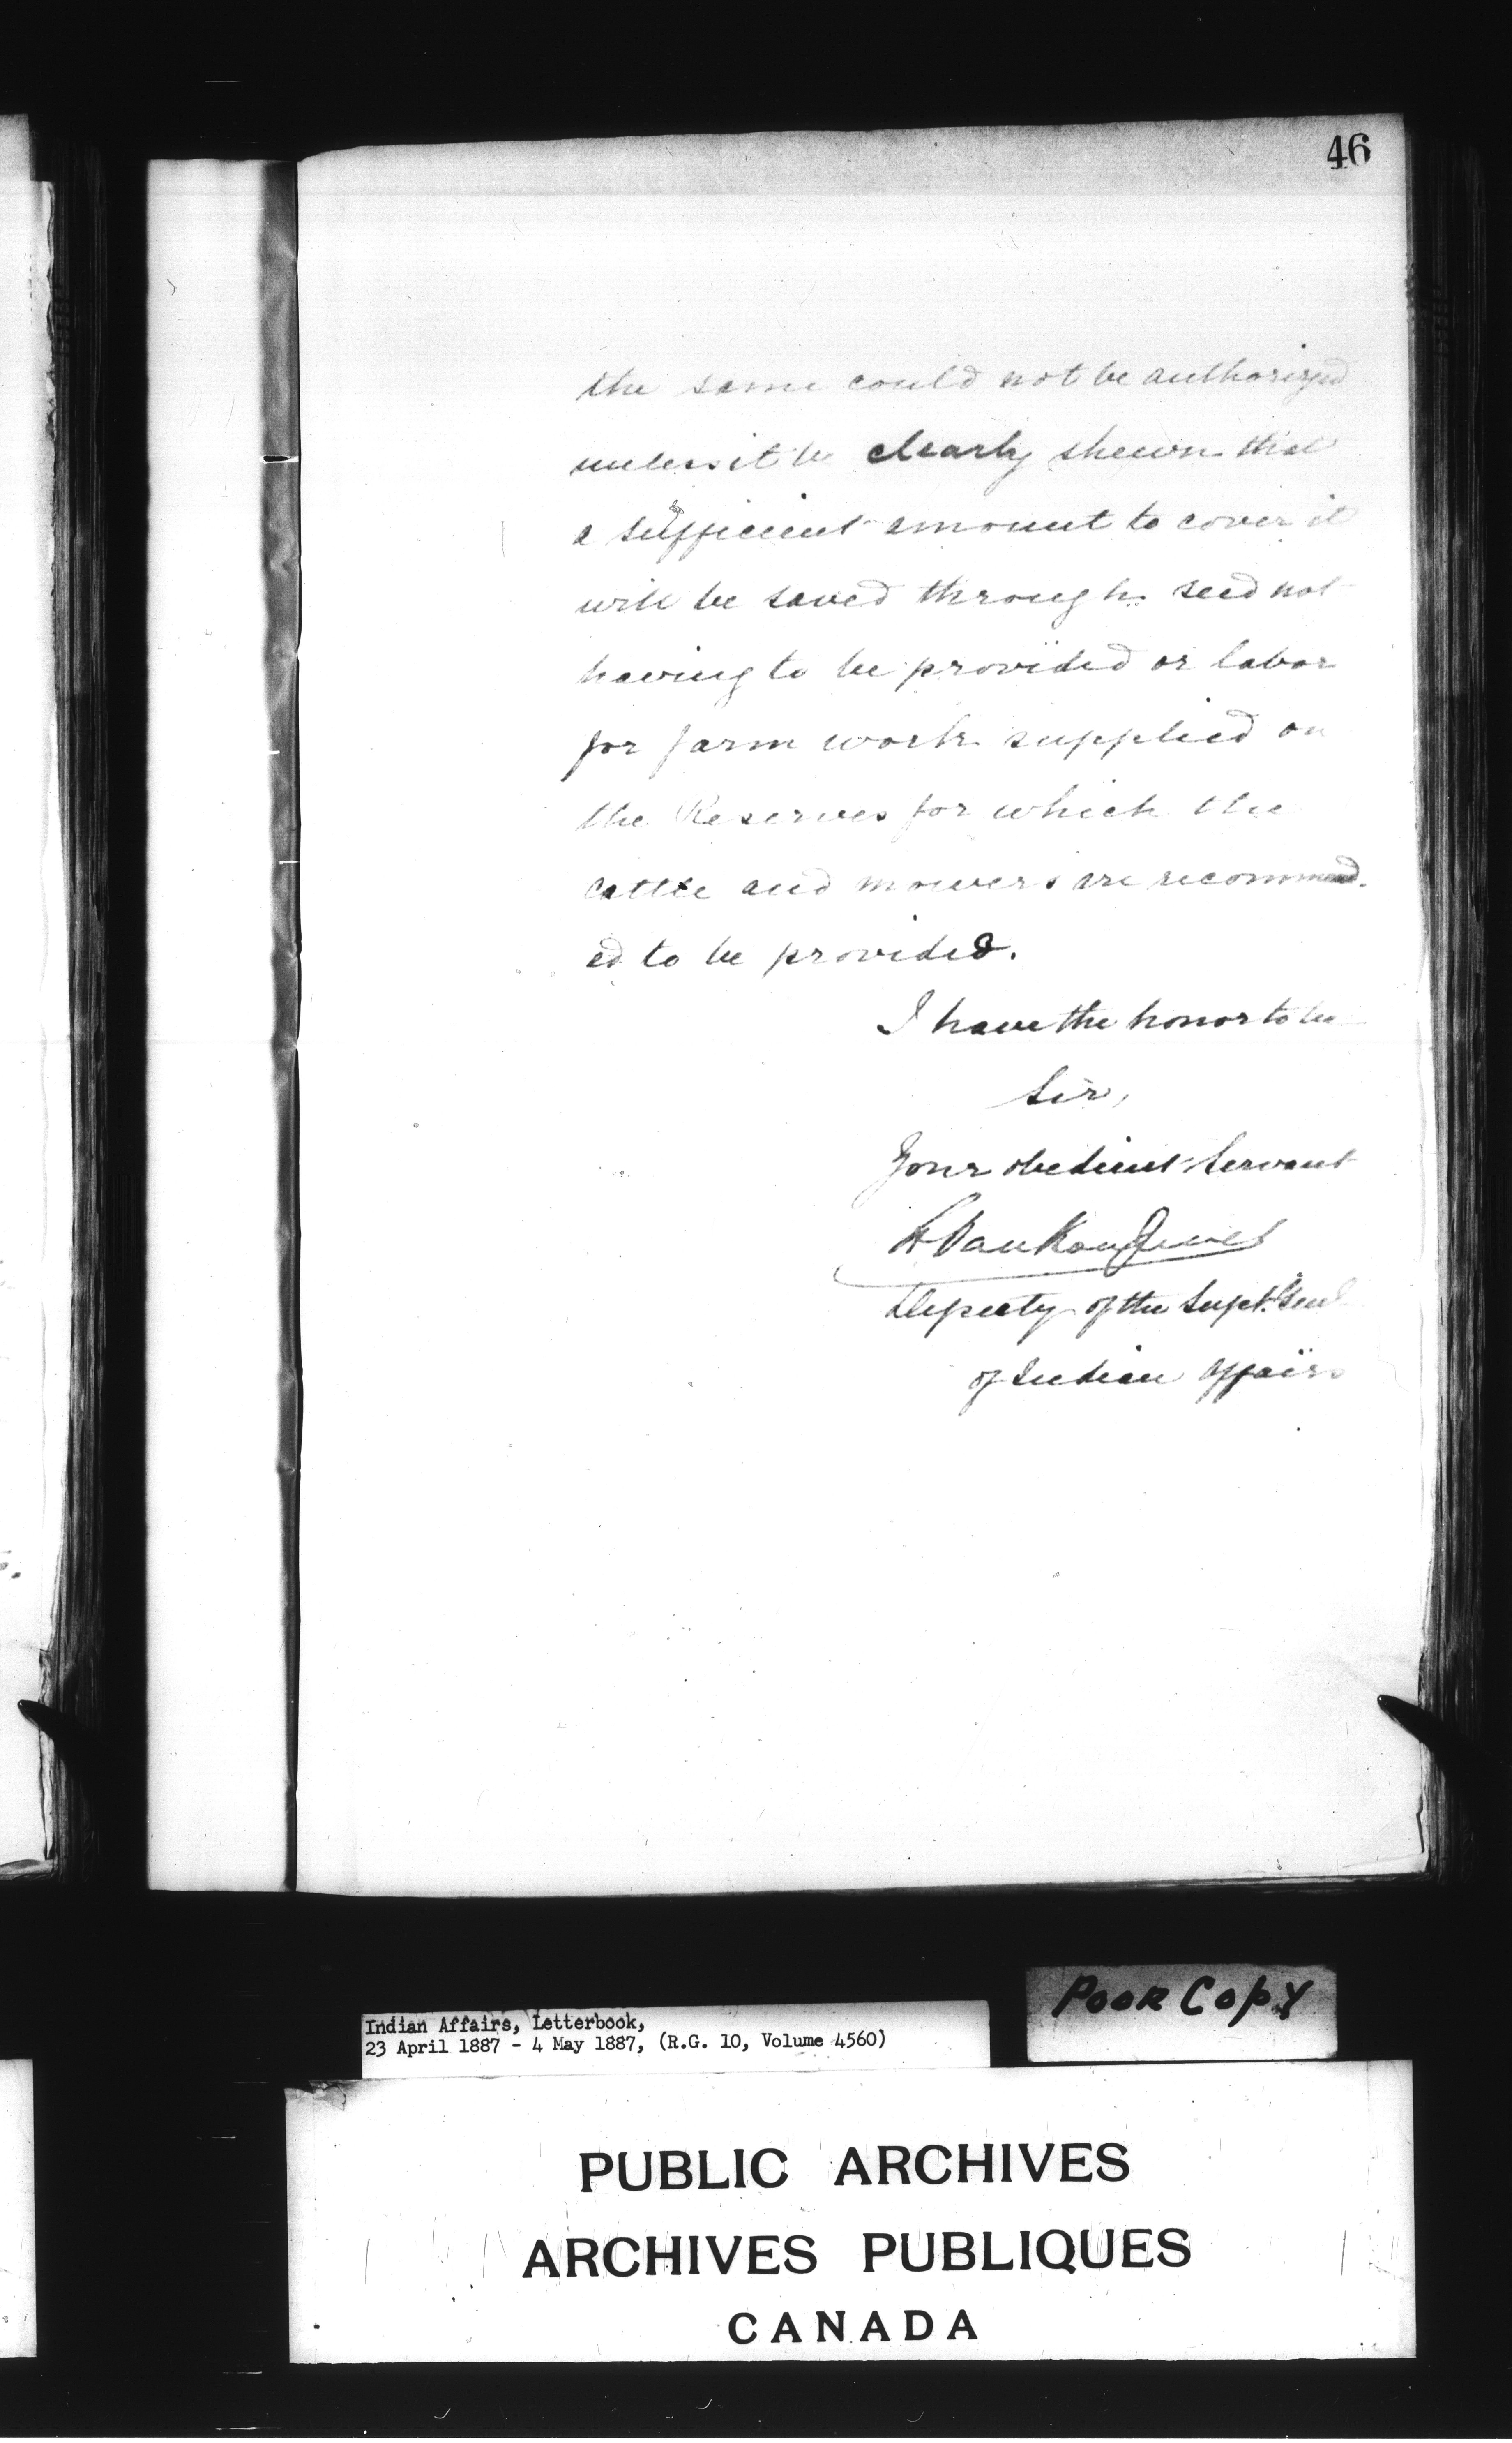 46
the same could not be authorized
unless it be clearly shewn that
a sufficient amount to cover it
will be saved through seed not
having to be provided or labor
for farm work supplied on
the Reserves for which the
cattle and mowers are recommend-
ed to be provided.
I have the honor to be
Sir,
Your obedient Servant
L VanKoughnet
Deputy of the Supt. Genl
of Indian Affairs
Poor Copy
Indian Affairs, Letterbook,
23 April 1887 - 4 May 1887, (R.G. 10, Volume 4560)
PUBLIC ARCHIVES
ARCHIVES PUBLIQUES
CANADA